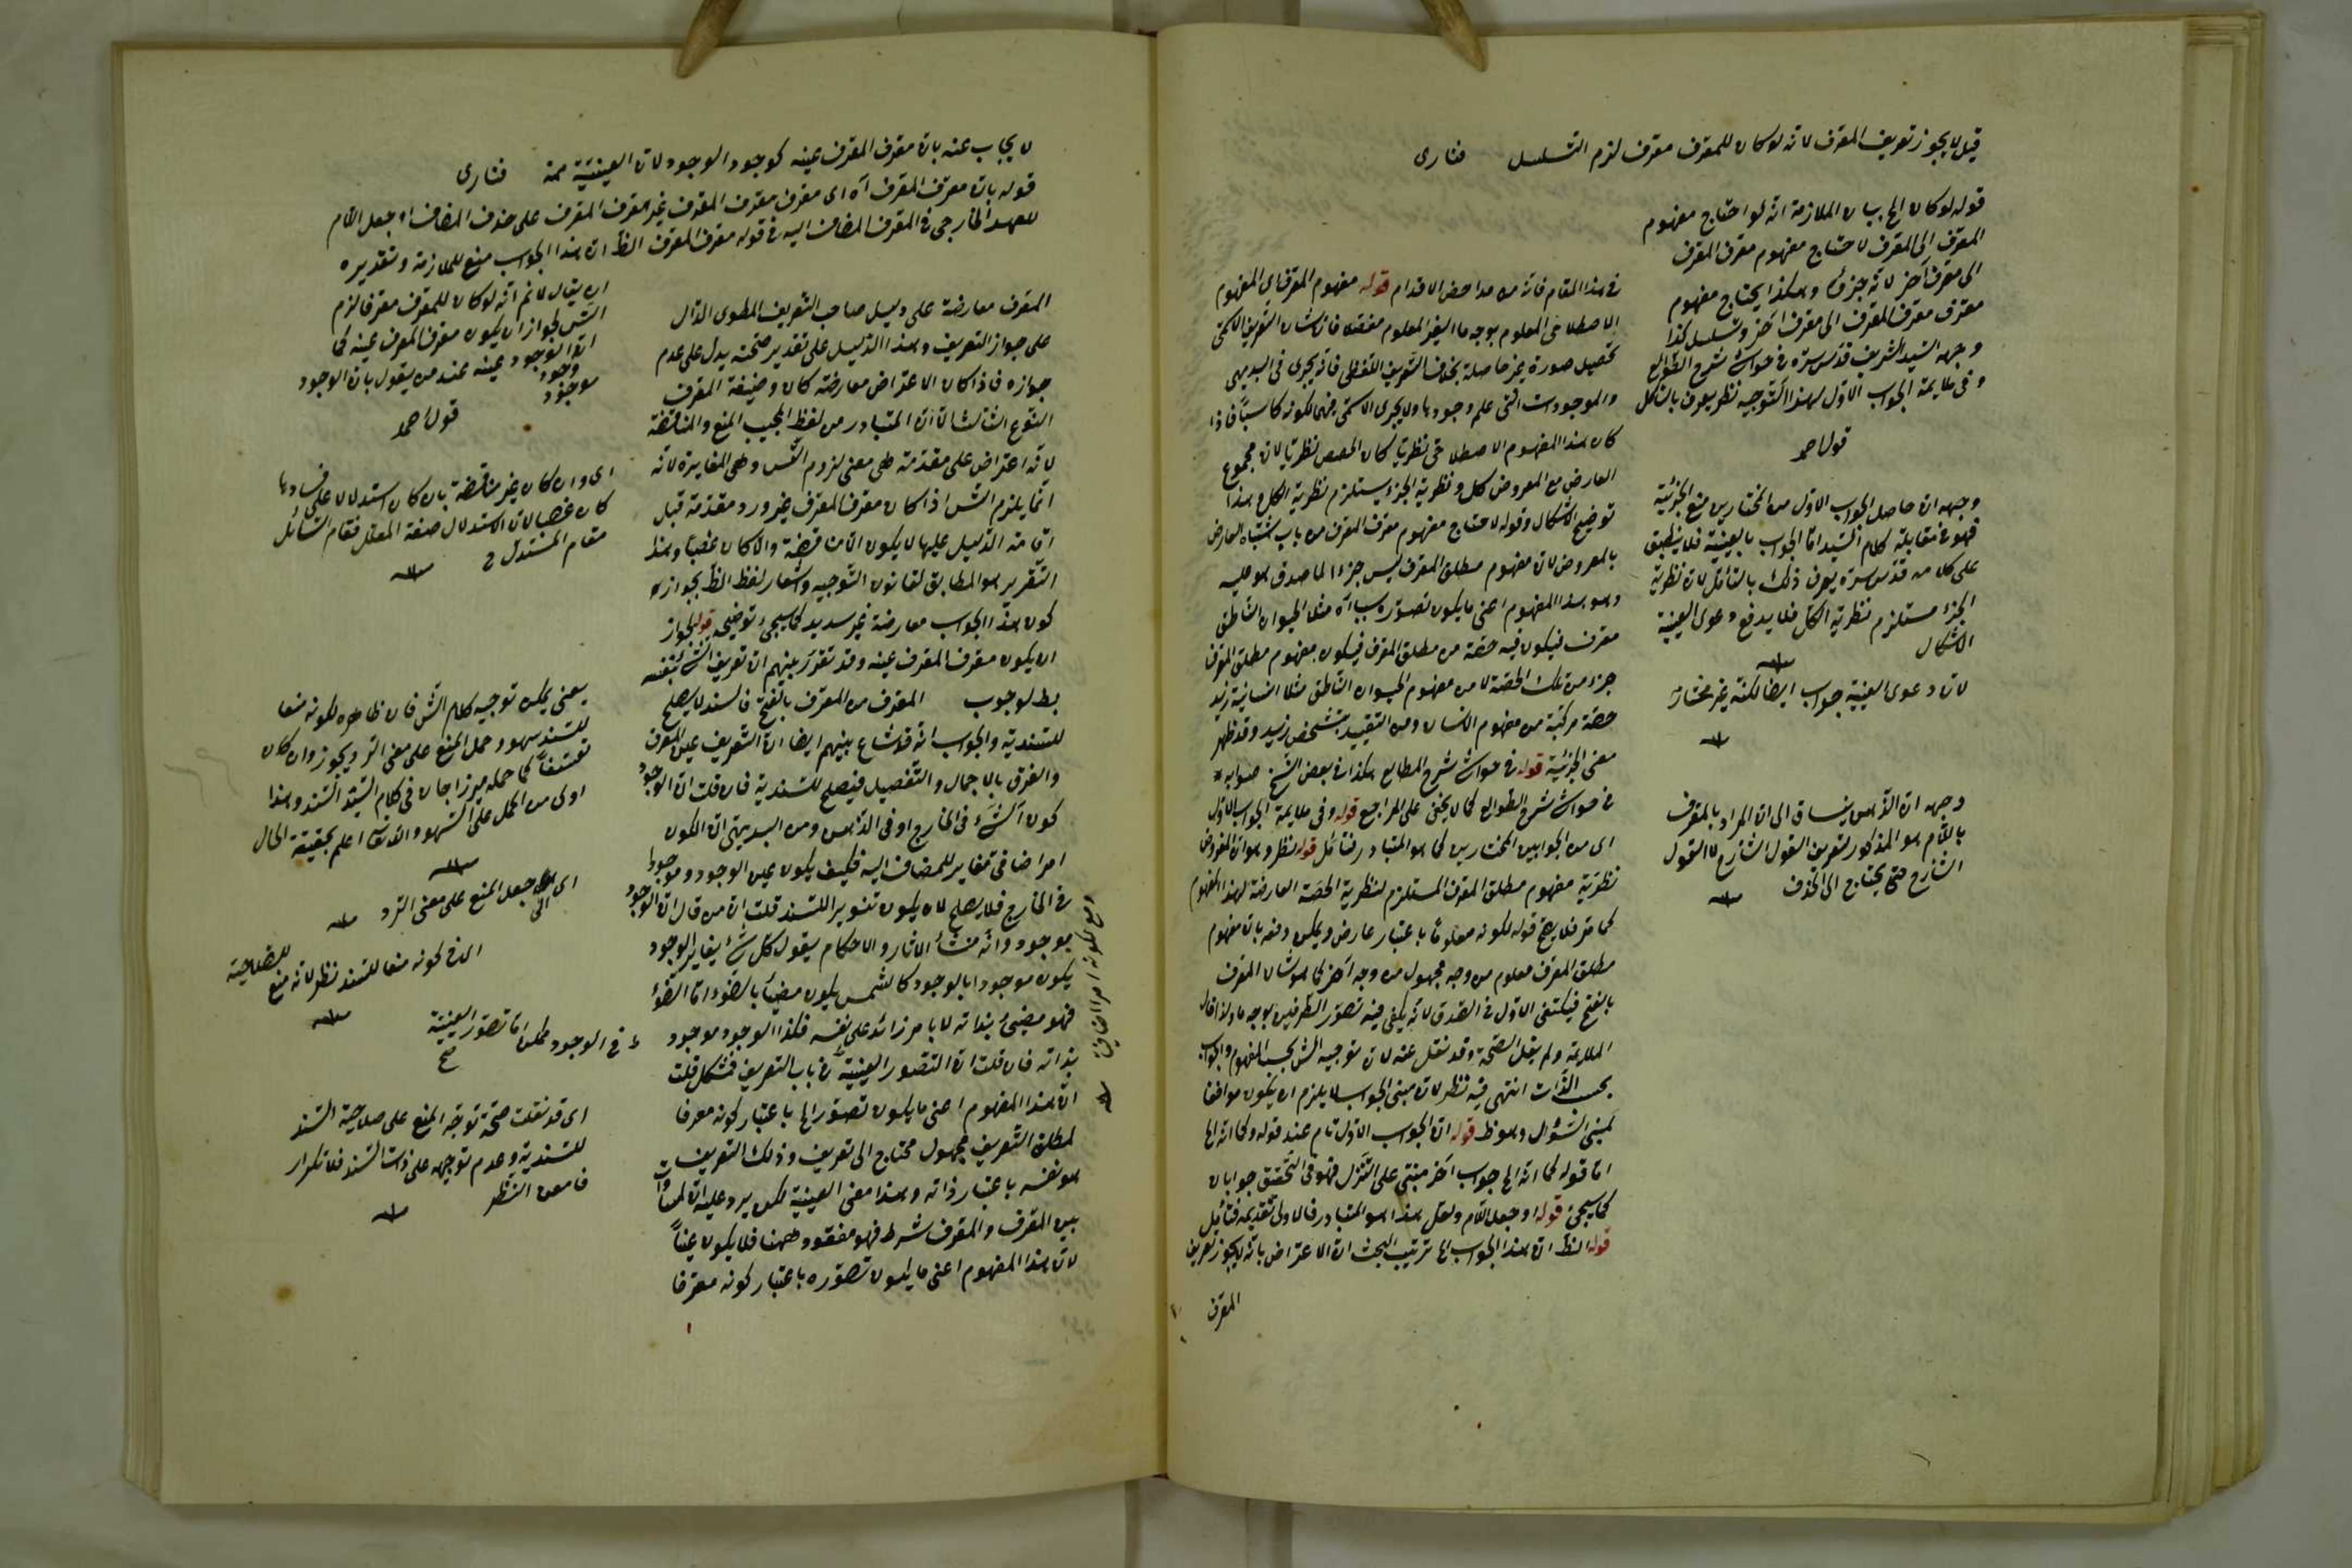 قيل لا يجوز تعريف المعرف لانه لو كان للمعرف معرف لزم التسلسل فنارى
قوله لو كان الخ بيان الملازمة انه لو احتاج مفهوم
المعرف الى المعرف لاحتاج مفهوم معرف المعرف
الى معرف آخر لانه جزؤه وهكذا يحتاج مفهوم
معرف معرف المعرف الى معرف آخر وتسلسل كذا
وجهه السيد الشريف قدس سره فى حواشى شرح الطوالع
وفى ملايمة الجواب الاول لهذا التوجيه نظر يعرف بالتأمل
قول احمد
وجهه ان حاصل الجواب الاول من المختارين منع الجزئية
فهو فى مقابلة كلام السيد اما الجواب بالعينية فلا ينطبق
على كلامه قدس سره يعرف ذلك بالتأمل لان نظرية
الجزء مستلزم نظرية الكل فلا يدفع دعوى العينية
الاشكال
لان دعوى العينية جواب ايضا لكنه غير مختار
وجهه ان الذهن ينساق الى ان المراد بالمعرف
باللام هو المذكور لتعريف القول الشارح لا القول
الشارح حتى يحتاج الى الحذف
فى هذا المقام فانه من مداحض الاقدام قوله مفهوم المعرف اى المفهوم
الاصطلاحى المعلوم بوجه ما الغير المعلوم مفصلا فان شان التعريف الاسمى
تحصيل صورة غير حاصلة بخلاف التعريف اللفظى فانه يجرى فى البديهى
والموجودات التى علم وجودها ولا يجرى الاسمى فيهما لكونه كاسبا فاذا
كان هذا المفهوم الاصطلاحى نظريا كان الحصص نظريا لان مجموع
العارض مع المعروض كل ونظرية الجزء يستلزم نظرية الكل وهذا
توضيح الاشكال وقوله لاحتاج مفهوم معرف المعرف من باب اشتباه العارض
بالمعروض لان مفهوم مطلق المعرف ليس جزءا لما صدق هو عليه
وهو هذا المفهوم اعنى ما يكون تصوره سببا آه مثلا الحيوان الناطق
معرف فيكون فيه حصة من مطلق المعرف فيكون مفهوم مطلق المعرف
جزء من تلك الحصة لا من مفهوم الحيوان الناطق مثلا انسانية زيد
حصة مركبة من مفهوم الانسان ومن التقييد بتشخص زيد وقد ظهر
معنى الجزئية قوله فى حواشى شرح المطالع هكذا فى بعض النسخ صوابه
فى حواشى شرح الطوالع كما لا يخفى على المراجع قوله وفى ملايمة الجواب الاول
اى من الجوابين المختارين كما هو المتبادر فتأمل قوله نظر وهو ان المفروض
نظرية مفهوم مطلق المعرف المستلزم لنظرية الحصة العارضة لهذا المفهوم
كما مر فلا يصح قوله لكونه معلوما باعتبار عارض ويمكن دفعه بان مفهوم
مطلق المعرف معلوم من وجه مجهول من وجه آخر كما هو شان المعرف
بالفتح فيكتفى الاول فى الصدق لانه يكفى فيه تصور الطرفين بوجه ما ولذا قال
الملايمة ولم يقل الصحة وقد نقل عنه لان توجيه الش بحسب المفهوم والجواب
بحسب الذات انتهى فيه نظر لان مبنى الجواب لا يلزم ان يكون موافقا
لمبنى السؤال وهو ظ قوله ان الجواب الاول تام عند قوله وكما انه الخ
اما قوله كما انه الخ جواب آخر مبنى على التنزل فهو فى التحقيق جوابان
كما سيجئ قوله او جعل اللام ولعل هذا هو المتبادر فالاولى تقديمه فتأمل
قوله الظ ان هذا الجواب الخ ترتيب البحث ان الاعتراض بانه لا يجوز تعريف
المعرف
لا يجاب عنه بان معرف المعرف عينه كوجود الوجود لان العينية ممة فنارى
قوله بان معرف المعرف آه اى معرف معرف المعرف غير معرف المعرف على حذف المضاف او جعل اللام
للعهد الخارجى فى المعرف المضاف اليه فى قوله معرف المعرف الظ ان هذا الجواب منع للملازمة وتقديره
ان يقال لانم انه لو كان للمعرف معرفا لزم
التس لجواز ان يكون معرف المعرف عينه كما
ان الوجود وجود عينه عند من يقول بان الوجود
موجود
قول احمد
المعرف معارضة على دليل صاحب التعريف المطوى الدال
على جواز التعريف وهذا الدليل على تقدير صحته يدل على عدم
جوازه فاذا كان الاعتراض معارضة كان وظيفة المعرف
النوع الثالث الا ان المتبادر من لفظ المجيب المنع والمناقضة
لانه اعتراض على مقدمة هى معنى لزوم التس وهى المغايرة لانه
انما يلزم التس اذا كان معرف المعرف غيره ورد مقدمة قبل
اقامة الدليل عليها لا يكون الا مناقضة والا كان غصبا وهذا
التقرير هو المطابق لقانون التوجيه واشعار لفظ الظ بجواز
كون هذا الجواب معارضة غير سديد كما سيجئ توضيحه قوله لجواز
ان يكون معرف المعرف عينه وقد تقرر بينهم ان تعريف الشئ بنفسه
بط لوجوب المعرف من المعرف بالفتح فالسند لا يصلح
للسندية والجواب انه قد شاع بينهم ايضا ان التعريف عين المعرف
والفرق بالاجمال والتفصيل فيصلح للسندية فان قلت ان الوجود
كون الشئ فى الخارج او فى الذهن ومن البديهى ان الكون
امر اضافى مغاير للمضاف اليه فكيف يكون عين الوجود وموجودا
فى الخارج فلا يصلح لان يكون تنويرا للسند قلت ان من قال ان الوجود
موجود وانه منشأ الاثار والاحكام يقول كل شئ يغاير الوجود
يكون موجودا بالوجود كالشمس يكون مضيئا بالضوء اما الضوء
فهو مضئ بذاته لا بامر زائد على نفسه فكذا الوجود موجود
بذاته فان قلت ان التصور العينية فى باب التعريف فمشكل قلت
ان هذا المفهوم اعنى ما يكون تصوره الخ باعتبار كونه معرفا
لمطلق التعريف مجهول محتاج الى تعريف وذلك التعريف
هو نفسه باعتبار ذاته وهذا معنى العينية لكن يرد عليه ان المساوات
بين المعرف والمعرف شرط فهو مفقود ههنا فلا يكون عينا
لان هذا المفهوم اعنى ما يكون تصوره باعتبار كونه معرفا
ومع كونه امرا اضافيا
اى وان كان غير مناقضة بان كان استدلالا على فسادها
كان غصبا لان الاستدلال صفة المعلل فقام السائل
مقام المستدل ح
يعنى يمكن توجيه كلام الش فان ظاهره لكونه منعا
للسند سهو وحمل المنع على معنى الرد ويجوز وان كان
تعسفا كما حمله ميرزاجان فى كلام السيد السند وهذا
اولى من الحمل على السهو والله تعالى اعلم بحقيقة الحال
اى جعل المنع على معنى الرد
الذى كونه منعا للسند نظر لانه منع
للصلاحية
فى الوجود ممكن اما تصور العينية
صح
اى قد نقلت صحة توجه المنع على صلاحية السند
للسندية وعدم توجيهه على ذات السند فلا تكرار
فامعن النظر